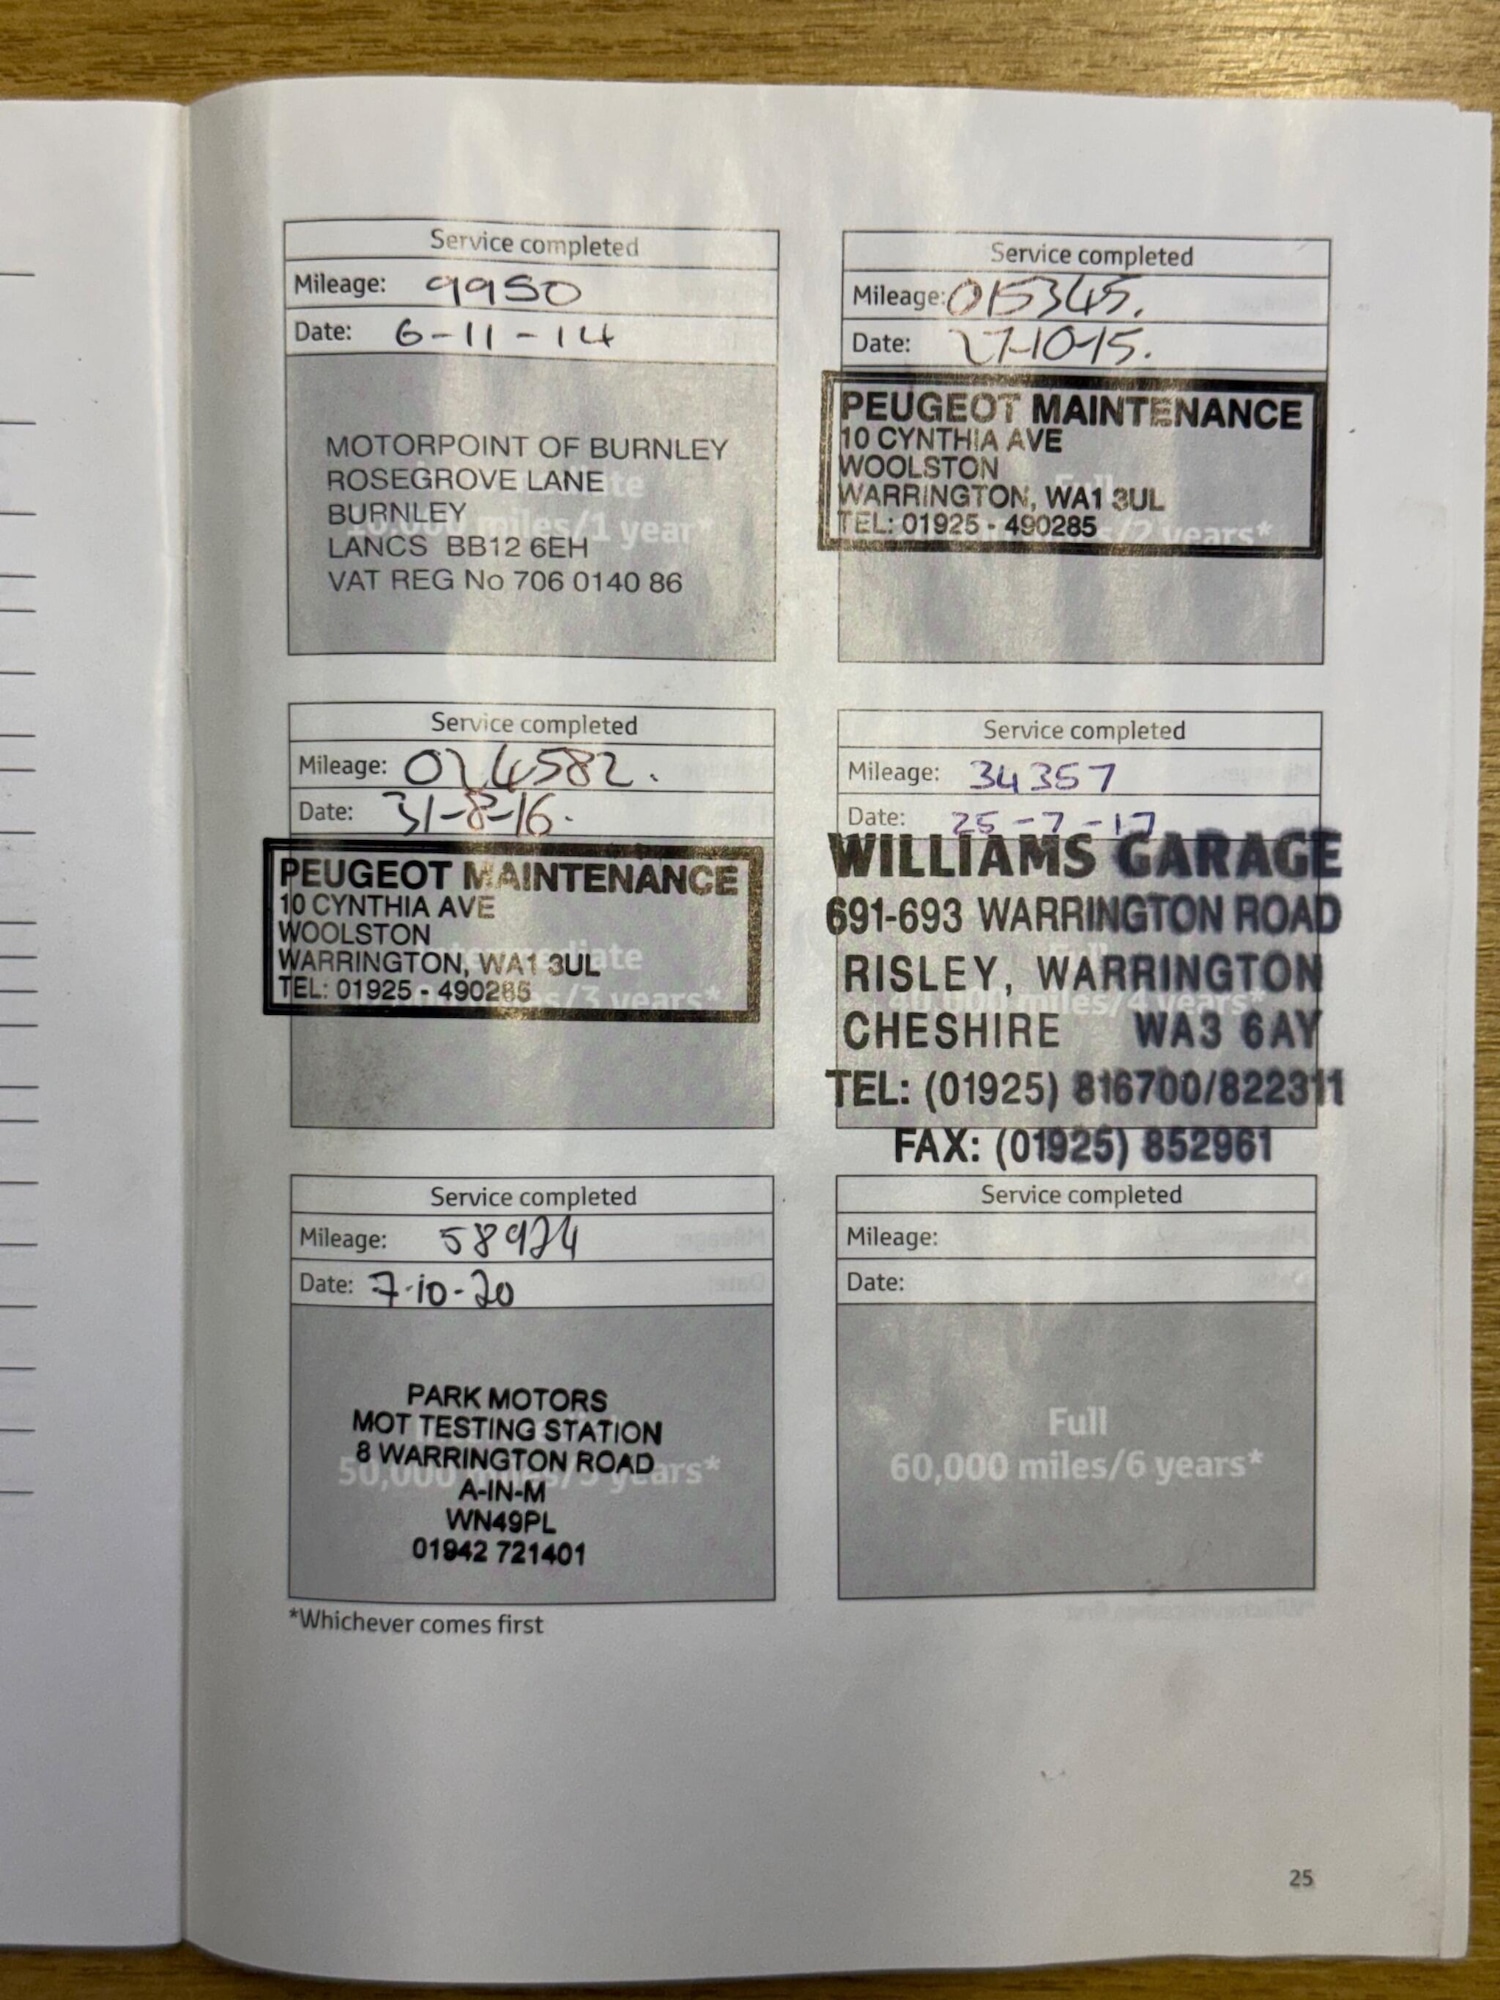 Service completed
Mileage: 9950
Date: 6-11-14
MOTORPOINT OF BURNLEY
ROSEGROVE LANE
BURNLEY
LANCS BB12 6EH
VAT REG No 706 0140 86
miles/1 year*
Service completed
Mileage: 015345.
Date: 27-10-15.
PEUGEOT MAINTENANCE
10 CYNTHIA AVE
WOOLSTON
WARRINGTON, WA1 3UL
TEL: 01925 - 490285
Full
/2 years*
Service completed
Mileage: 024582.
Date: 31-8-16.
PEUGEOT MAINTENANCE
10 CYNTHIA AVE
WOOLSTON
WARRINGTON, WA1 3UL
TEL: 01925 - 490285
Intermediate
/3 years*
Service completed
Mileage: 34357
Date: 25-7-17
WILLIAMS GARAGE
691-693 WARRINGTON ROAD
RISLEY, WARRINGTON
CHESHIRE WA3 6AY
TEL: (01925) 816700/822311
FAX: (01925) 852961
Full
40,000 miles/4 years*
Service completed
Mileage: 58924
Date: 7-10-20
PARK MOTORS
MOT TESTING STATION
8 WARRINGTON ROAD
A-IN-M
WN49PL
01942 721401
50,000 miles/5 years*
Service completed
Mileage:
Date:
Full
60,000 miles/6 years*
*Whichever comes first
25